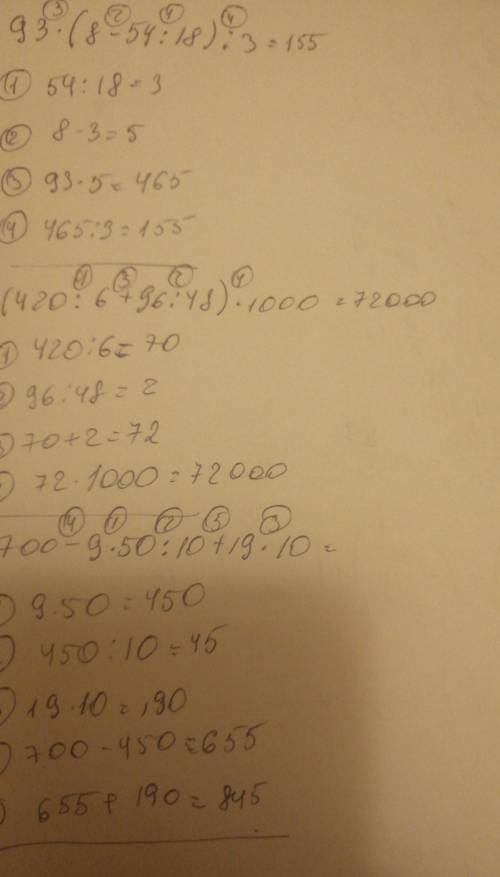 ③ ② ① ④
93·(8-54:18):3=155
① 54:18=3
② 8-3=5
③ 93·5=465
④ 465:3=155
① ③ ② ④
(420:6+96:48)·1000=72000
① 420:6=70
② 96:48=2
③ 70+2=72
72·1000=72000
④ ① ② ⑤ ③
700-9·50:10+19·10=
9·50=450
450:10=45
19·10=190
700-450=655
655+190=845